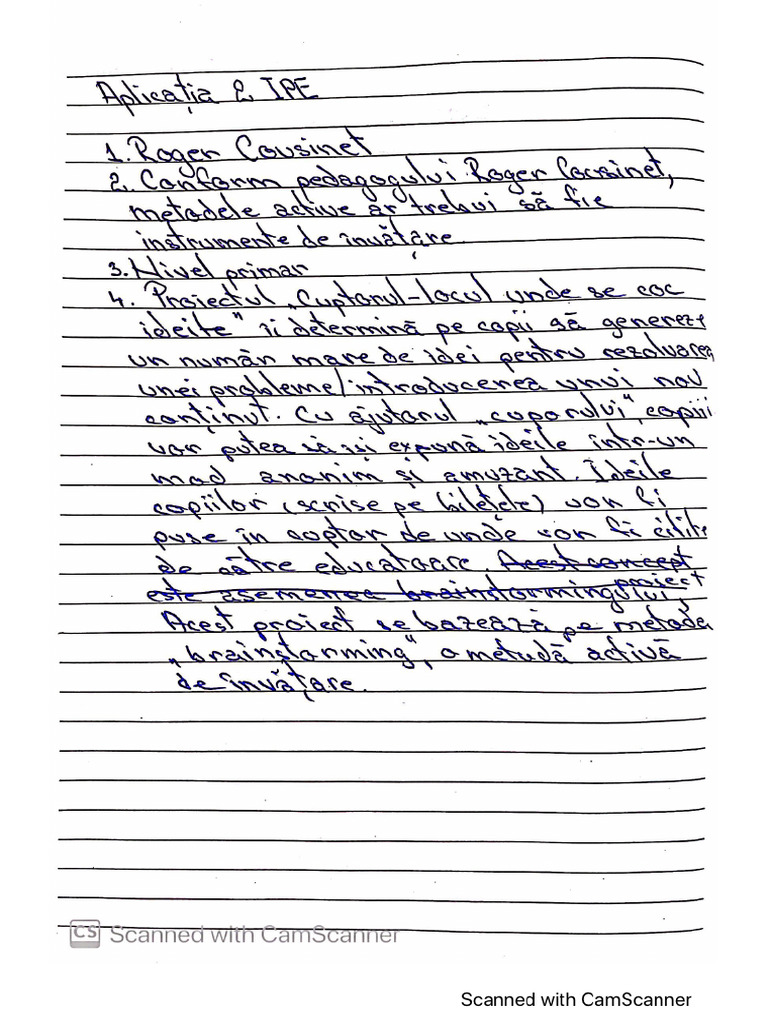 Aplicația 2 IPE
1. Roger Cousinet
2. Conform pedagogului Roger Cousinet,
metodele active ar trebui să fie
instrumente de învățare.
3. Nivel primar
4. Proiectul „Cuptorul-locul unde se coc
ideile" îi determină pe copii să genereze
un număr mare de idei pentru rezolvarea
unei probleme/introducerea unui nou
conținut. Cu ajutorul „cuporului", copiii
vor putea să își expună ideile într-un
mod anonim și amuzant. Ideile
copiilor (scrise pe bilețele) vor fi
puse în cuptor de unde vor fi citite
de către educatoare. Acest concept
este asemenea brainstormingului, proiect
Acest proiect se bazează pe metoda
„brainstorming", o metodă activă
de învățare.
CS Scanned with CamScanner
Scanned with CamScanner